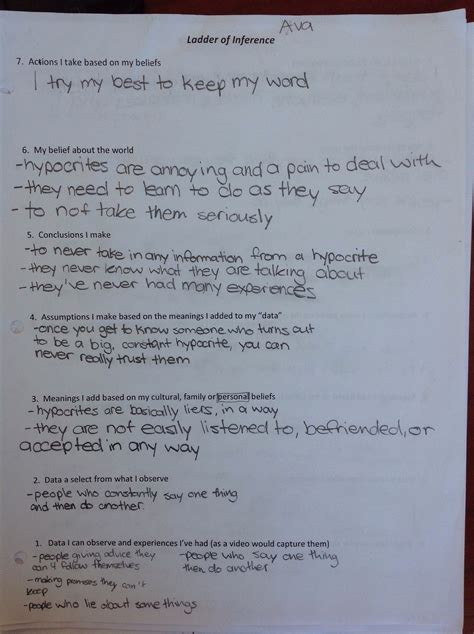 Ava
Ladder of Inference
7. Actions I take based on my beliefs
I try my best to keep my word
6. My belief about the world
-hypocrites are annoying and a pain to deal with
-they need to learn to do as they say
- to not take them seriously
5. Conclusions I make
-to never take in any information from a hypocrite
-they never know what they are talking about
-they've never had many experences
4. Assumptions I make based on the meanings I added to my "data"
-once you get to know someone who turns out
to be a big, constant hypocrite, you can
never really trust them
3. Meanings I add based on my cultural, family or personal beliefs
- hypocrites are basically liers, in a way
-they are not easily listened to, befriended, or
accepted in any way
2. Data a select from what I observe
-people who constantly say one thing
and then do another.
1. Data I can observe and experiences I've had (as a video would capture them)
-people giving advice they
can't follow themselves
-making promises they can't
keep
-people who lie about some things
-people who say one thing
then do another